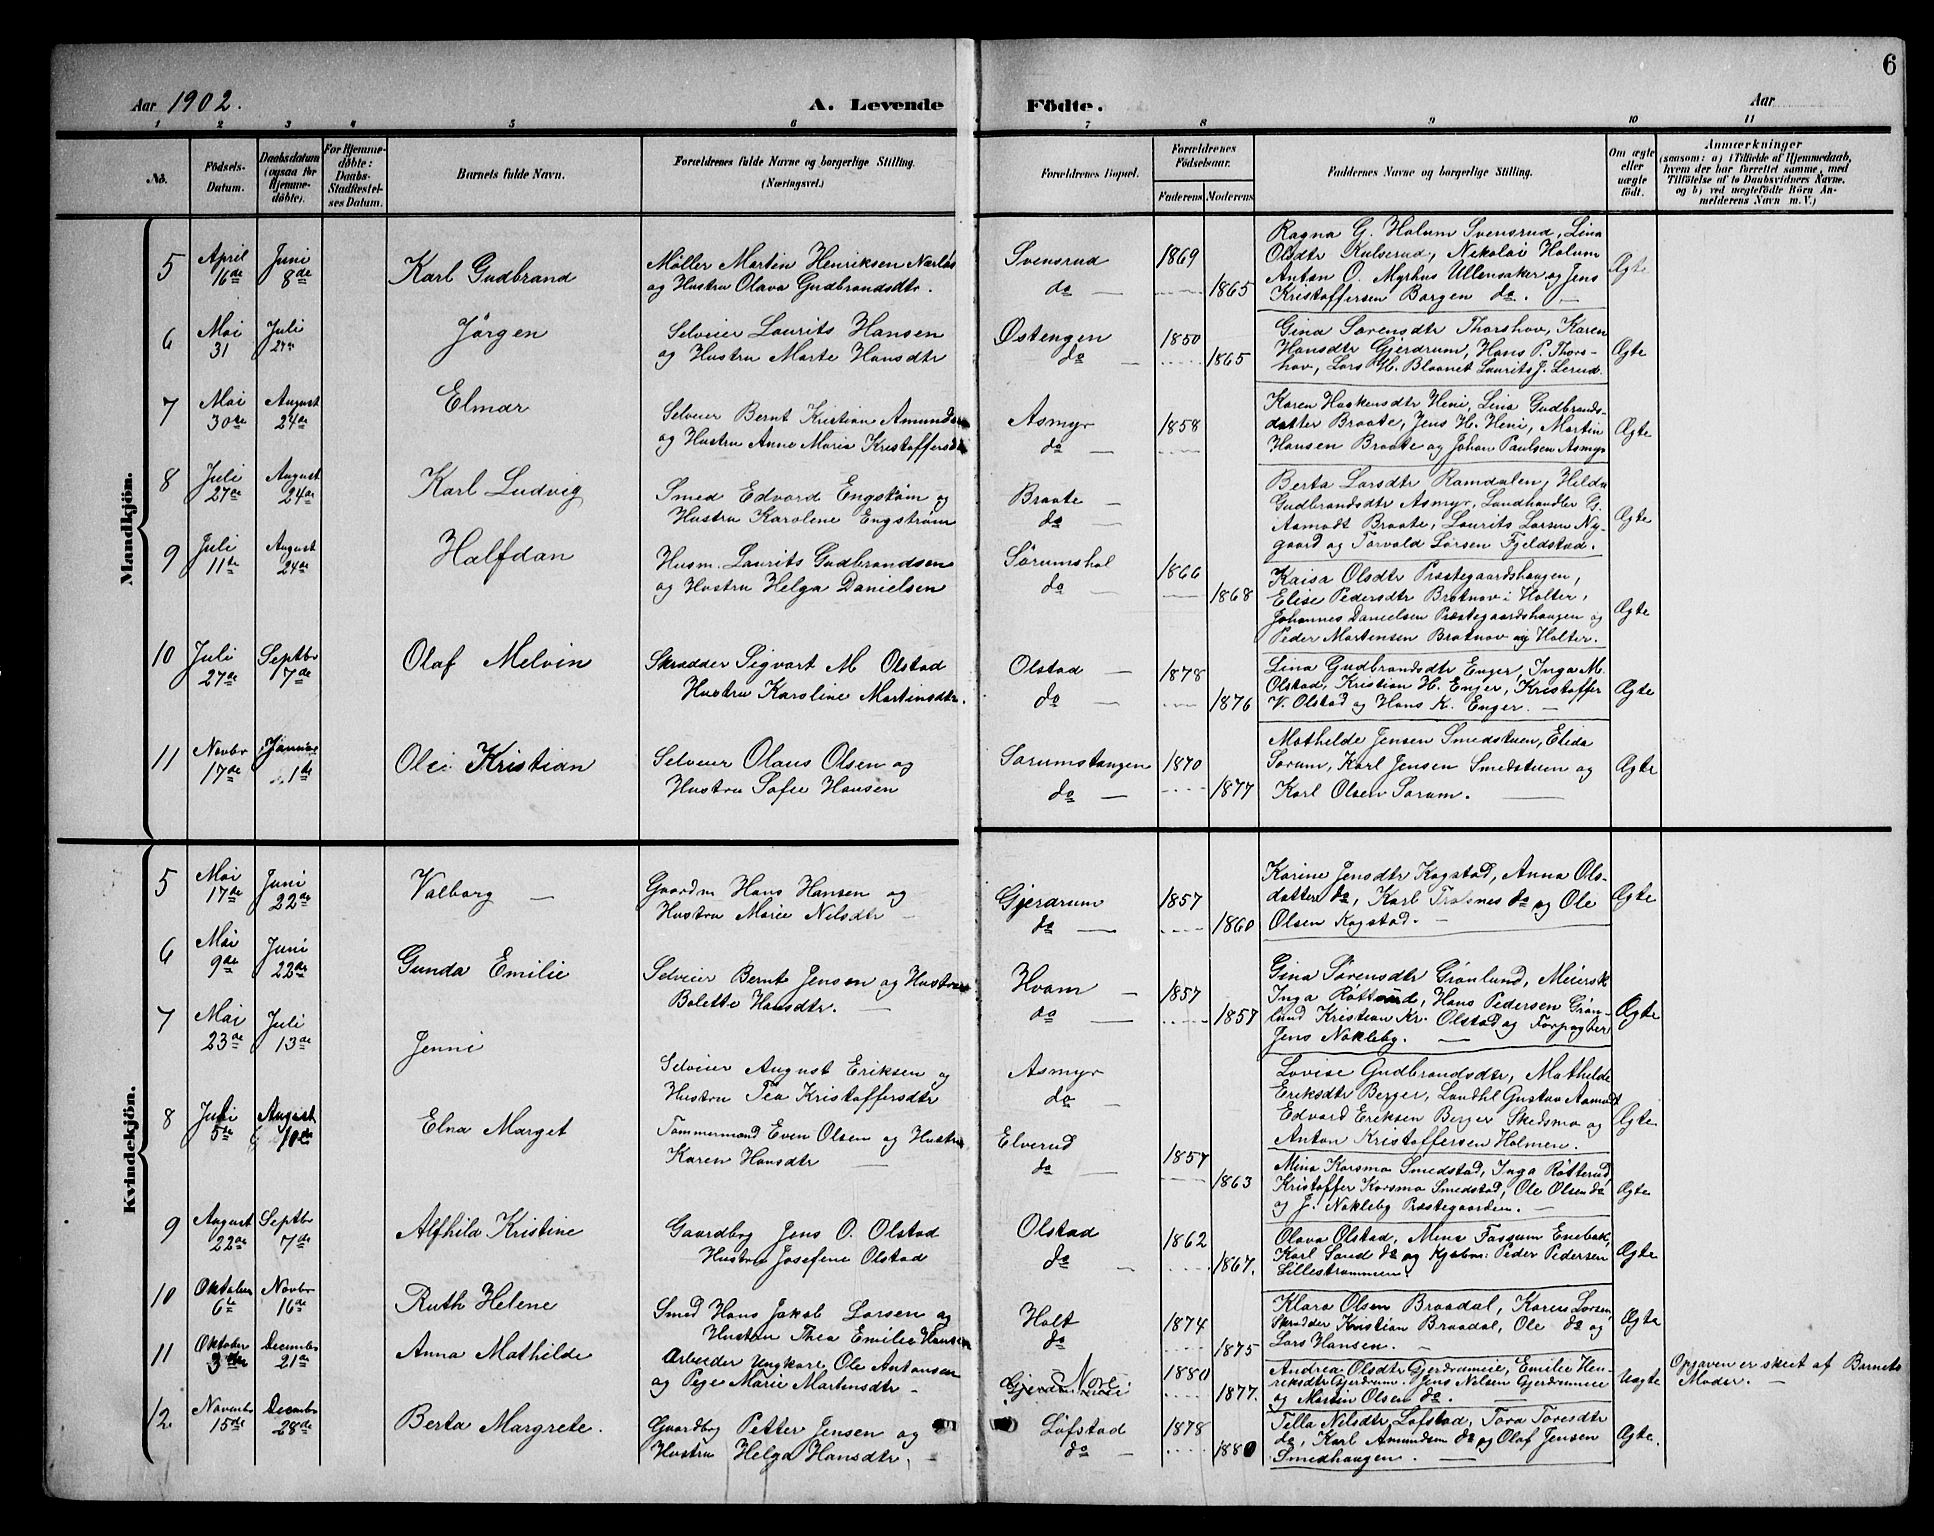 6
Aar 1902. A. Levende Födte. Aar
1 2 3 4 5 6 7 8 9 10 11
No. Födsels-Datum. Daabsdatum (ogsaa for Hjemmedøbte). For Hjemmedøbte: Daabs-Stadfæstelses Datum. Barnets fulde Navn. Forældrenes fulde Navne og borgerlige Stilling. (Næringsvei.) Forældrenes Bopæl. Forældrenes Fødselsaar. Faderens Moderens Faddernes Navne og borgerlige Stilling. Om ægte eller uægte født. Anmærkninger (saasom: a) i Tilfælde af Hjemmedaab, hvem der har forrettet samme, med Tilføielse af to Daabsvidners Navne, og b) ved uægtefødte Börn Anmelderens Navn m. V.)
Mandkjön.
5 April 16de Juni 8de Karl Gudbrand Møller Martin Henriksen
og Hustru Olava Gudbrandsdtr.
Svensrud 1869
do — 1865
Ragna G. Holum Svensrud, Lina
Olsdtr Kulserud, Nikolai Holum
Anton O. Myrhus Ullensaker og Jens
Kristoffersen Borgen do. —
Ægte
6 Mai 31 Juli Jørgen Selveier Laurits Hansen
og Hustru Marte Hansdtr
Østengen 1850
do — 1865
Gina Sørensdtr Thorshov, Karen
Hansdtr Gjerdrum, Hans P. Thors-
hov, Lars H. Blaanet Laurits J. Lerud.
Ægte
7 Mai 30te August 24de Elmar Selveier Bernt Kristian Amundsen
og Hustru Anne Maria
Asmyr 1858
do —
Karen Haakensdtr Heni, Lina Gudbrands-
datter Braate, Jens H. Heni, Martin
Hansen Braate og Johan Paulsen Asmyr
Ægte
8 Juli 27de August 24de Karl Ludvig Smed Edvard Engstøm og
Hustru Karolene Engstrøm
Braate —
do —
Berta Larsdtr Ramdalen, Hilda
Gudbrandsdtr Asmyr, Landhandler G.
Asmodt Braate, Laurits Larsen Ny-
gaard og Torvald Larsen Fjeldstad.
Ægte
9 Juli 11te August 24de Halfdan Husm. Laurits Gudbrandsen
og Hustru Helga Danielsen
Sørumshol 1866
do — 1868
Kaisa Olsdtr Præstegaardshaugen,
Elise Pedersdtr Bratnov i Holter,
Johannes Danielsen Præstegaardshaugen og
Peder Martensen Bratnov Holter.
Ægte
10 Juli 27de Septbr 7de Olaf Melvin Skrædder Sigvart M Olstad
Hustru Karoline Martinsdtr.
Olstad — 1878
do — 1876
Lina Gudbrandsdtr Enger, Inga M.
Olstad, Kristian H. Enger, Kristoffer
V. Olstad og Hans K. Enger. —
Ægte
11 Novbr 17de 1de Olei Kristian Selveier Olaus Olsen og
Hustru Sofie Hansen
Sørumstangen 1870
do — 1877
Mathilde Jensen Smedstuen, Elida
Sørum, Karl Jensen Smedstuen og
Karl Olsen Sørum. —
Ægte
Kvindekjön.
5 Mai 17de Juni 22de Valborg — Gaardm Hans Hansen og
Hustru Marie Nilsdtr —
Gjerdrum 1857
do — 1860
Karine Jensdtr Kogstad, Anna Ols-
datter do, Karl do og Ole
Olsen Kogstad. —
Ægte
6 Mai 9de Juni 22de Gunda Emilie Selveier Bernt Jensen og Hustru
Bolette Hansdtr. —
Hvam — 1857
do — 1857
Gina Sørensdtr Grønlund, Meiersk
Inga Røtterud, Hans Pedersen Grøn-
lund Kristian Kr. Olstad og Forpagter
Jens Nokleby. —
Ægte
7 Mai 23de Juli 13de Jenni Selveier August Eriksen og
Hustru Tea Kristoffersdtr
Asmyr
do —
Lovise Gudbrandsdtr, Mathilde
Eriksdtr Berger, Landhl Gustav Asmodt
Edvard Eriksen Berger Skedsmo og
Anton Kristoffersen Holmen.
Ægte
8 Juli 5te August 10de Elna Marget Tømmermand Even Olsen og Hustru
Karen Hansdtr —
Elverud 1857
do — 1863
Mina Korsmo Smedstad, Inga Røtterud,
Kristoffer Korsmo Smedstad, Ole Olsen do
og J. Nokleby Præstegaarden. —
Ægte
9 August 22de Septbr 7de Alfhild Kristine Gaardbrg Jens O. Olstad
Hustru Josefine Olstad
Olstad 1862
do — 1867.
Olava Olstad, Mina Fossum Enebak,
Karl Sand do og Kjøbm: Peder Pedersen
Lillestrømmen.
Ægte
10 Oktober 6te Novbr 16de Ruth Helene Smed Hans Jakob Larsen og
Hustru Thea Emilie Hansen
Holt 1874
do 1875
Klara Olsen Braadal, Karen Larsen
Skrædder Kristian Braadal, Ole do og
Lars Hansen. —
Ægte
11 Oktober 3de Decembr 21de Anna Mathilde Arbeider Ungkarl Ole Antonsen
og Pige Marie Martensdtr —
Gjerdrum 1880
1877.
Andrea Olsdtr Gjerdrumeie, Emilie Hen-
riksdtr Gjerdrum. Jens Nilsen Gjerdrumeie
og Martin Olsen do. —
Uægte
Opgaven er skeet af Barnets
Moder. —
12 Novembr 15de Decembr 28de Berta Margrete. Gaardbrg Petter Jensen og
Hustru Helga Hansdtr. —
Löfstad 1878
do — 1880
Tella Nilsdtr Løfstad, Tora Toresdtr
do, Karl Amundsen do og Olaf Jensen
Smedhaugen. —
Ægte.